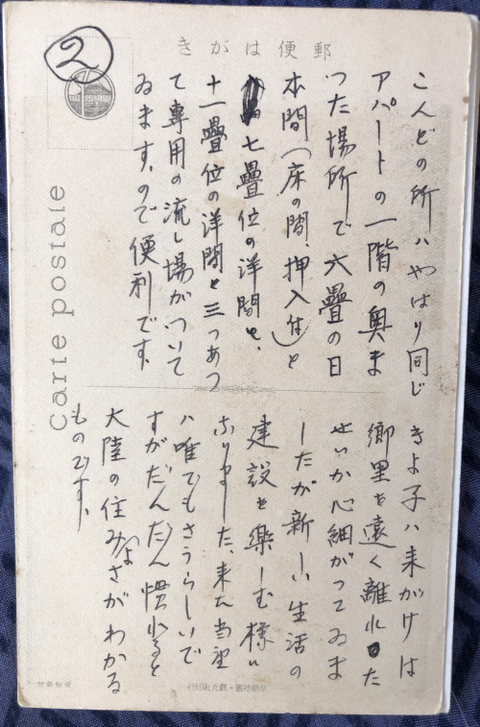 郵便はがき
②
Carte postale
こんどの所ハやはり同じ
アパートの一階の奥ま
つた場所で六疊の日
本間(床の間、押入付)と
七疊位の洋間と、
十一疊位の洋間と三つあつ
て専用の流し場がついて
ゐます、ので便利です、
きよ子ハ来がけは
郷里を遠く離れた
せいか心細がつてゐま
したが新しい生活の
建設を楽しむ様に
なりました、来た当座
ハ唯でもさうらしいで
すがだんだん慣れると
大陸の住みよさがわかる
ものです、